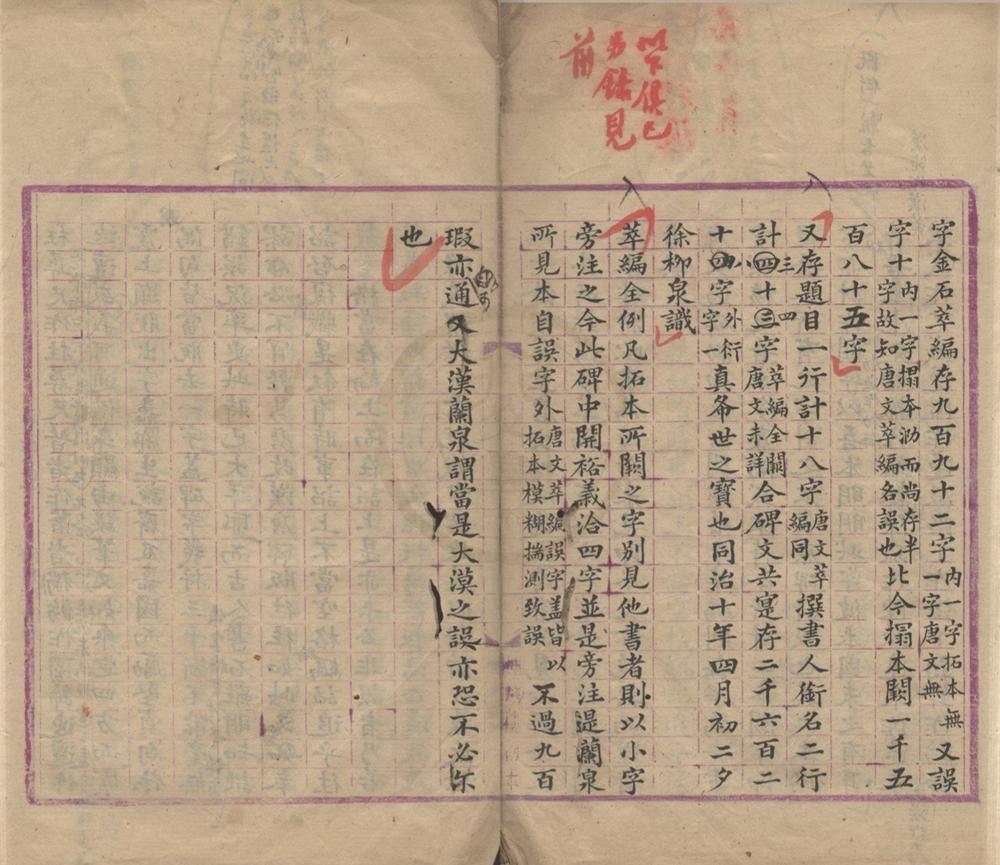 以下俱已
另錄見
前
字金石萃編存九百九十二字內一字拓本無一字唐文無又誤
字十內一字搨本泐而尚存半字故知唐文萃編名誤也比今搨本闕一千五
百八十五字
又存題目一行計十八字唐文萃編同撰書人銜名二行
計四十三字萃編全闕唐文未詳合碑文共寔存二千六百二
十四字外衍字一真希世之寶也同治十年四月初二夕
徐柳泉識
萃編全例凡拓本所闕之字別見他書者則以小字
旁注之今此碑中開裕義洽四字並是旁注是蘭泉
所見本自誤字外唐文萃編誤字蓋皆以拓本模糊揣測致誤不過九百
瑕亦通又大漢蘭泉謂當是大漠之誤亦恐不必尔
也